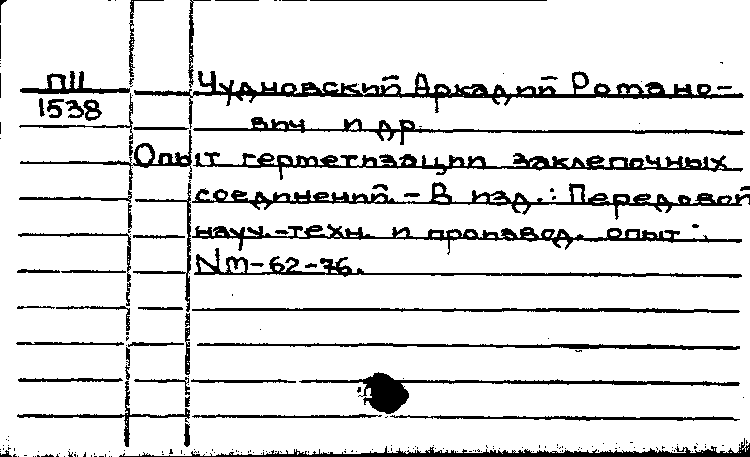 П11
1538
Чудновский Аркадий Романо-
вич и др.
Опыт герметизации заклепочных
соединений. - В изд.: Передовой
науч.-техн. и производ. опыт:
NM-62-76.